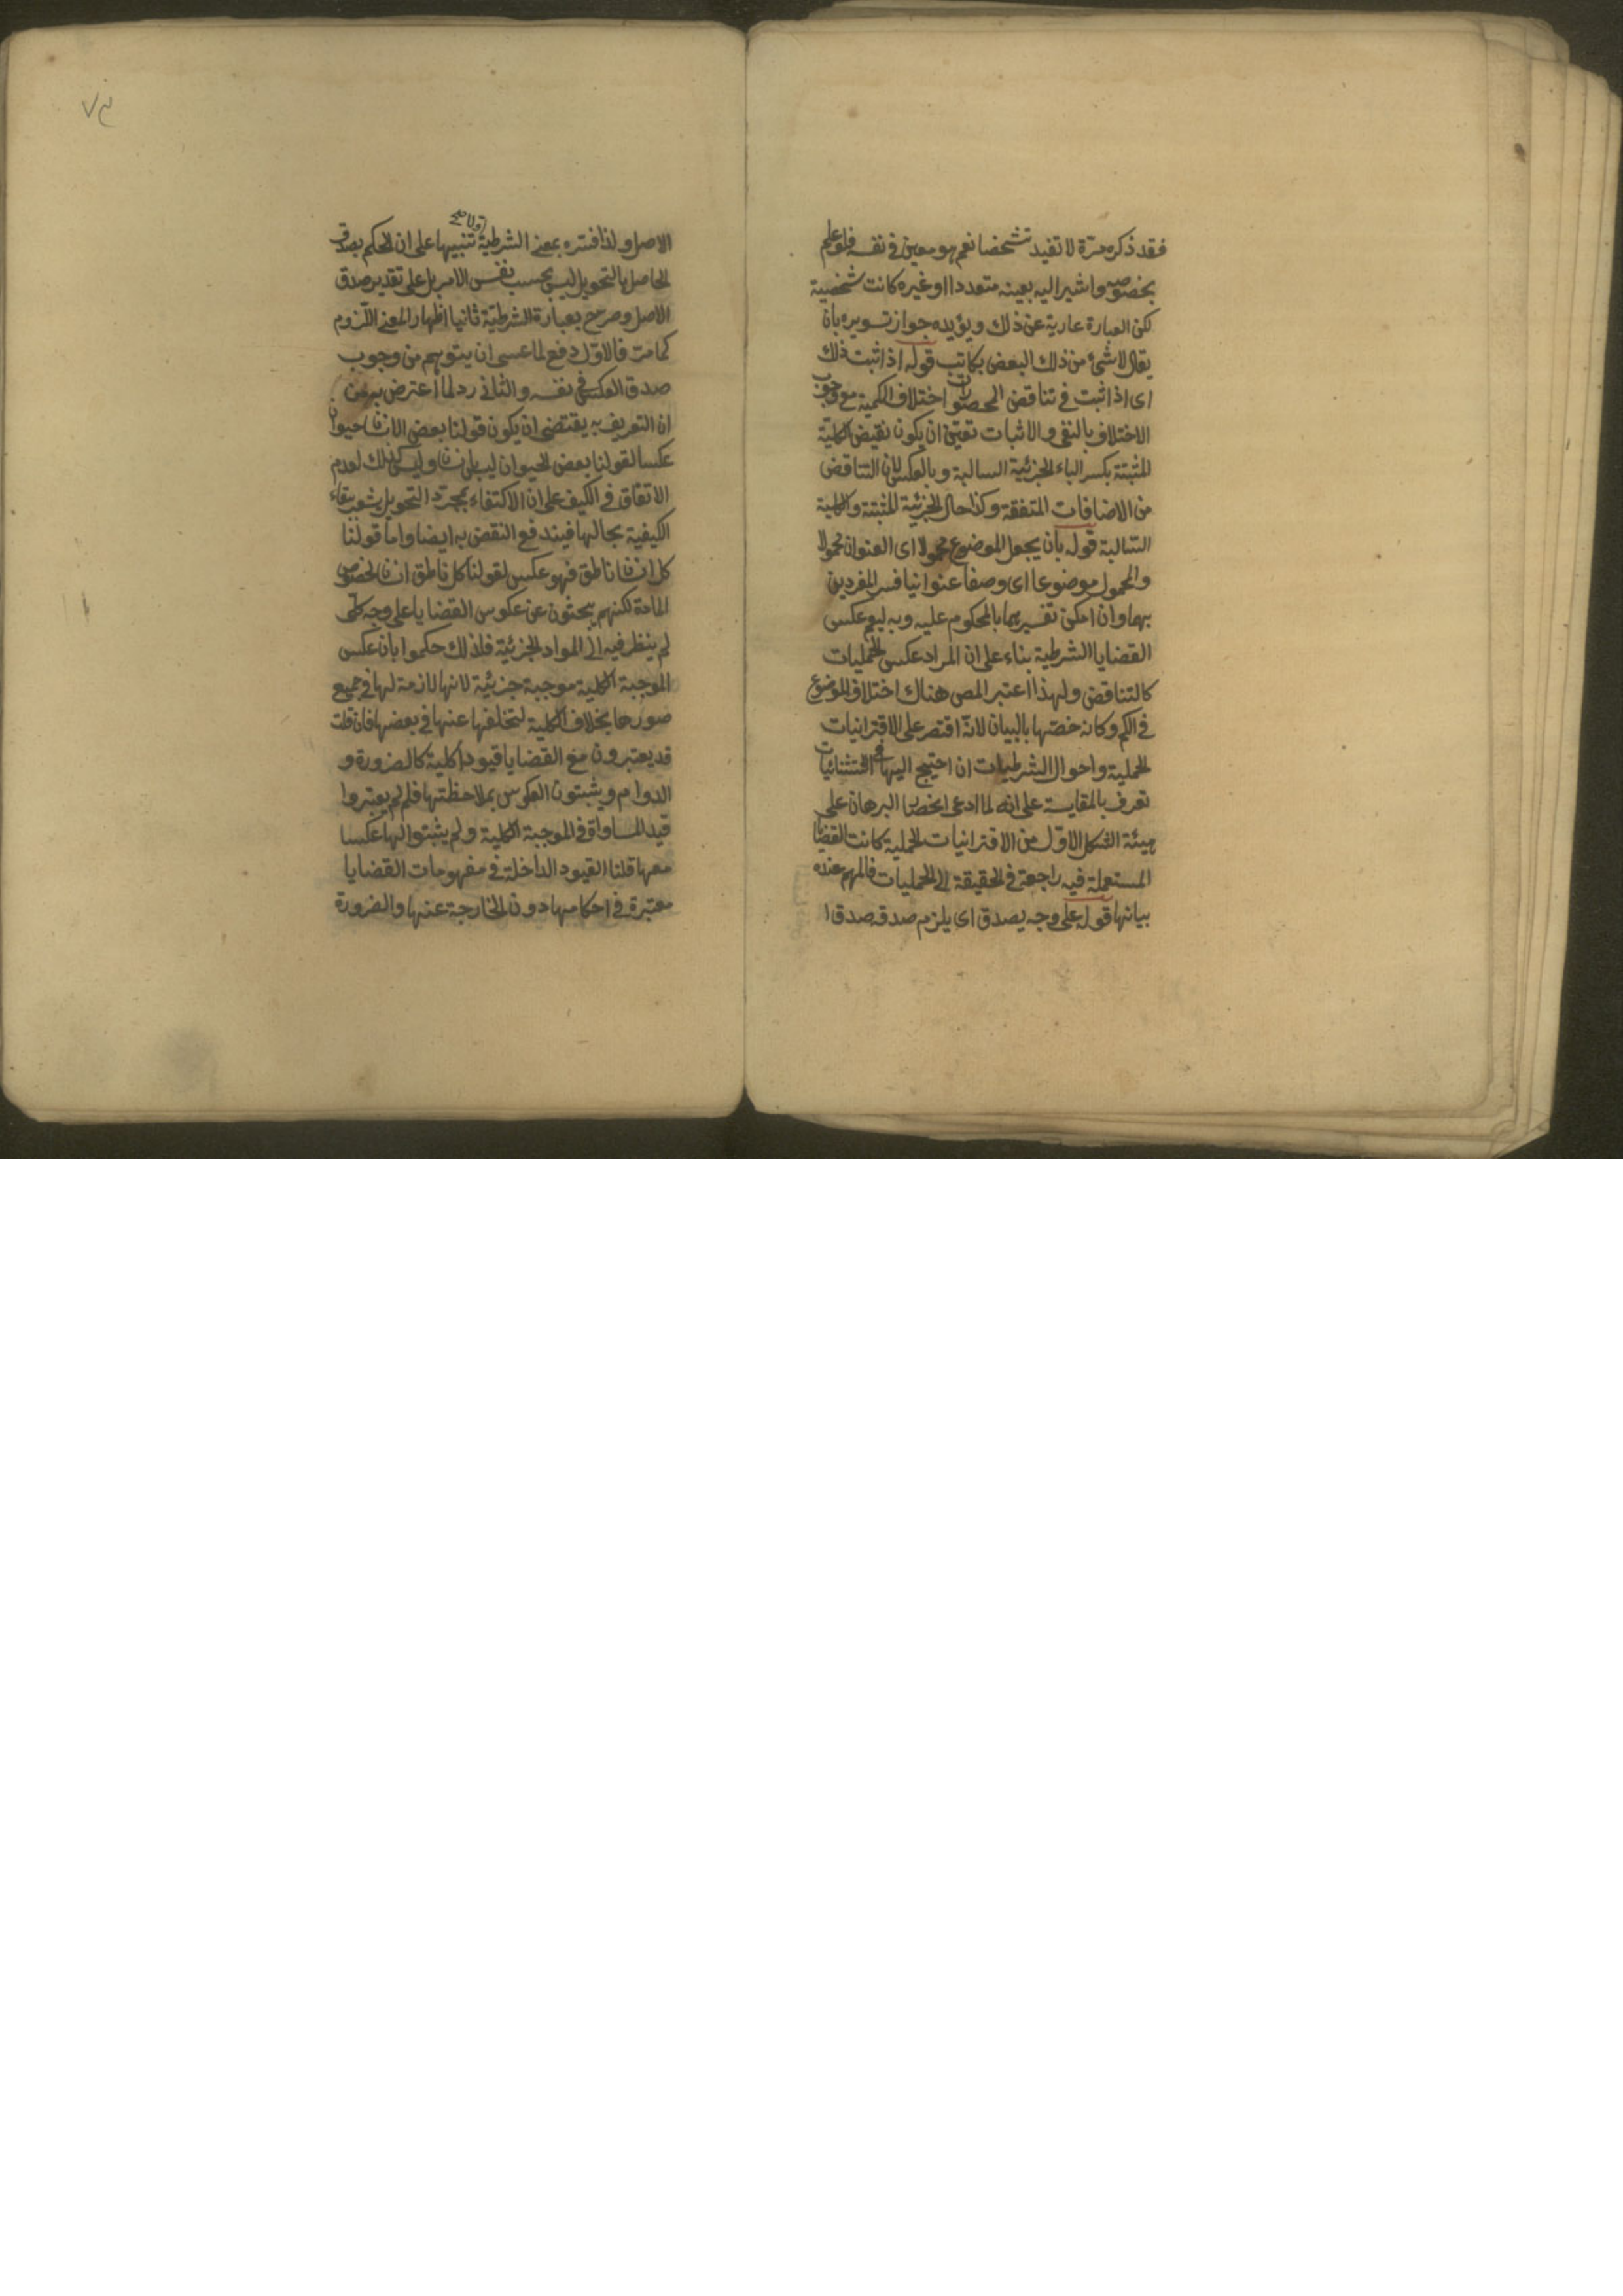 فقد ذكره مرة لا تفيد تشخصا نعم هو معين في نفسه فلو علم
بخصوصه واشير اليه بعينه متعددا او غيره كانت شخصية
لكن العبارة عارية عن ذلك ويؤيده جواز تسويره بان
يقال لا شئ من ذلك البعض بكاتب قوله اذا ثبت ذلك
اى اذا ثبت في تناقض المحصورات اختلاف الكمية مع وجوب
الاختلاف بالنفى والاثبات تعين ان يكون نقيض الكلية
المثبتة بكسر الباء الجزئية السالبة وبالعكس لان التناقض
من الاضافات المتفقة وكذا حال الجزئية المثبتة والكلية
السالبة قوله بان يجعل الموضوع محمولا اى العنوان محمولا
والمحمول موضوعا اى وصفا عنوانيا فسر المفردين
بهما وان امكن تفسيرهما بالمحكوم عليه وبه ليعم عكس
القضايا الشرطية بناء على ان المراد عكس الحمليات
كالتناقض ولهذا اعتبر المص هناك اختلاف الموضوع
في الكم وكانه خصها بالبيان لانه اقتصر على الاقترانيات
الحملية واحوال الشرطيات ان احتيج اليها في استثنائيات
تعرف بالمقايسة على انه لما ادعى انحصار البرهان على
هيئة الشكل الاول من الاقترانيات الحملية كانت القضايا
المستعملة فيه راجعة في الحقيقة الى الحمليات فالمهم عنده
بيانها قوله على وجه يصدق اى يلزم صدقه صدق ا
٧٣
اولا صح
الاصل ولذا فسره بمعنى الشرطية تنبيها على ان الحكم بصدق
الحاصل بالتحويل ليس بحسب نفس الامر بل على تقدير صدق
الاصل وصرح بعبارة الشرطية ثانيا اظهارا لمعنى اللزوم
كما مت فالاول دفع لما عسى ان يتوهم من وجوب
صدق العكس في نفسه والثاني رد لما اعترض به من
ان التعريف به يقتضى ان يكون قولنا بعض الانسان حيوان
عكسا لقولنا بعض الحيوان ليس بانسان وليس كذلك لعدم
الاتفاق في الكيف على ان الاكتفاء بمجرد التحويل يشعر ببقاء
الكيفية بحالها فيندفع النقض به ايضا واما قولنا
كل انسان ناطق فهو عكس لقولنا كل ناطق انسان لخصوص
المادة لكنهم يبحثون عن عكوس القضايا على وجه كلى
لم ينظر فيه الى المواد الجزئية فلذلك حكموا بان عكس
الموجبة الكلية موجبة جزئية لانها لازمة لها في جميع
صورها بخلاف الكلية لتخلفها عنها في بعضها فان قلت
قد يعتبرون مع القضايا قيودا كلية كالضرورة و
الدوام ويثبتون العكوس بملاحظتها فلم لم يعتبروا
قيد المساواة في الموجبة الكلية ولم يثبتوا لها عكسا
معها قلنا القيود الداخلة في مفهومات القضايا
معتبرة في احكامها دون الخارجة عنها والضرورة